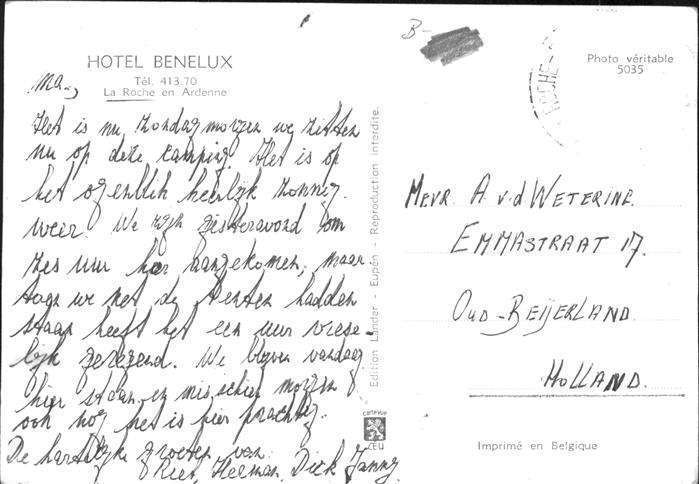 HOTEL BENELUX
Tél. 413.70
La Roche en Ardenne
Ma.,
Het is nu, zondagmorgen we zitten
nu op deze camping. Het is op
het ogenblik heerlijk zonnig.
weer. We zijn gisteravond om
zes uur hier aangekomen, maar
toen we net de tenten hadden
staan heeft het een uur vrese-
lijk geregend. We blijven vandaag
hier staan en misschien morgen
ook nog het is hier prachtig.
De hartelijke groeten van
Riet, Herman, Dick Janny.
Edition Lander - Eupen - Reproduction interdite.
B-
ROCHE-
Photo véritable
5035
Mevr. A v.d Wetering.
Emmastraat 17.
Oud-Beijerland
Holland.
CEU
Imprimé en Belgique